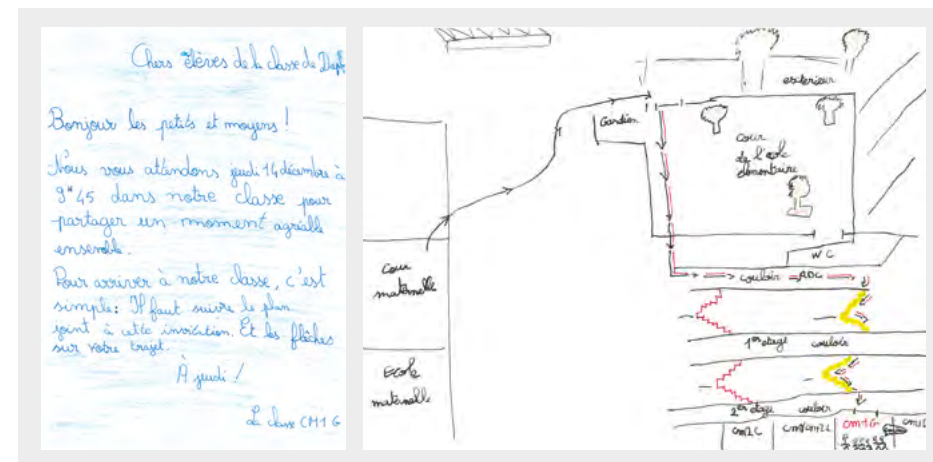 Chers élèves de la classe de
Bonjour les petits et moyens !
Nous vous attendons jeudi 14 décembre à
9H45 dans notre classe pour
partager un moment agréable
ensemble.
Pour arriver à notre classe, c'est
simple : Il faut suivre le plan
joint à cette invitation. Et les flèches
sur votre trajet.
À jeudi !
La classe CM1 G
exterieur
Gardien
cour
de l'école
élémentaire
WC
Cour
maternelle
couloir RDC
1er etage couloir
Ecole
maternelle
2er etage couloir
cm2C
cm1G